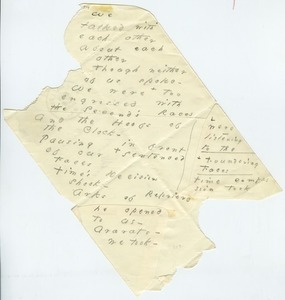 We
talked with
each other
about each
other
Though neither
of us spoke -
We were too
engrossed with
the Second's Races
And the Hoofs of
the Clock -
Pausing in front
of our Sentenced
Faces
Time's Decision
shook -
Arks of Reprieve
he opened
to us -
Ararats -
we took -
were
listening
to the
Foundering
Faces
Time compas
sion took